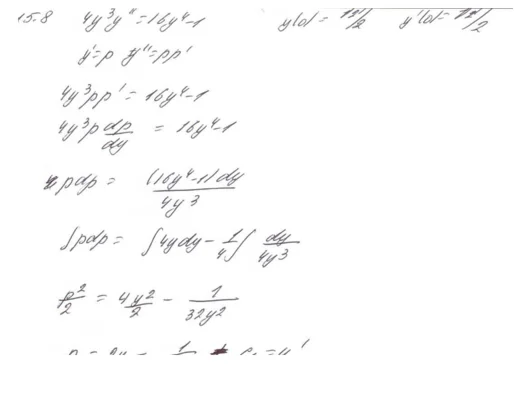 15.8 4y³y''=16y⁴-1 y(0)= √2/2 y'(0)= √2/2
y'=p y''=pp'
4y³pp'=16y⁴-1
4y³p dp/dy = 16y⁴-1
pdp= (16y⁴-1)dy/4y³
∫pdp= ∫4ydy- 1/4∫ dy/4y³
p²/2 = 4y²/2 - 1/32y²